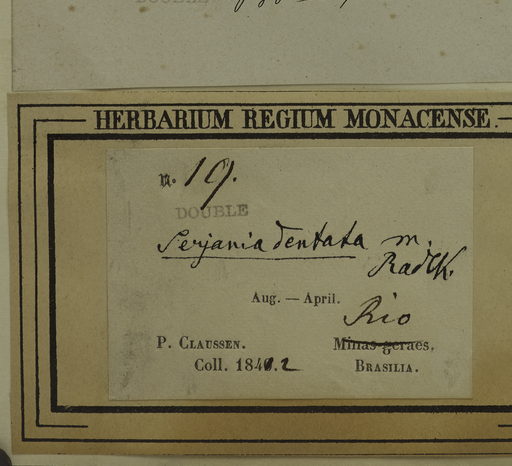 DOUBLE
HERBARIUM REGIUM MONACENSE.
n. 19.
DOUBLE
Serjania dentata m.
Radlk.
Aug. — April.
Rio
P. CLAUSSEN. Minas geraes.
Coll. 184.2 BRASILIA.